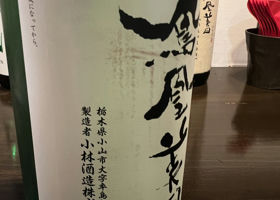 鳳凰美
栃木県小山市大字卒島
製造者 小林酒造株
になってから。